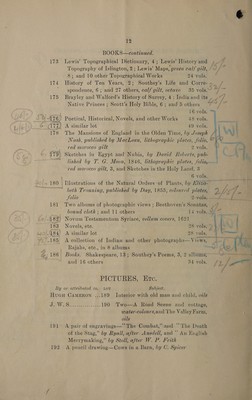 12
BOOKS—continued.
173 Lewis' Topographical Dictionary, 4; Lewis' History and
Topography of Islington, 2; Lewis' Maps, green calf gilt,
8; and 10 other Topographical Works 24 vols.
174 History of Ten Years, 2; Southey's Life and Corre-
spondence, 6; and 27 others, calf gilt, octavo 35 vols.
175 Brayley and Walford's History of Surrey, 4; India and its
Native Princes; Scott's Holy Bible, 6; and 5 others
16 vols.
176 Poetical, Historical, Novels, and other Works 49 vols.
177 A similar lot 44 vols.
178 The Mansions of England in the Olden Time, by Joseph
Nash, published by MacLean, lithographic plates, folio,
red morocco gilt 4 vols.
179 Sketches in Egypt and Nubia, by David Roberts, pub-
lished by T. G. Moon, 1846, lithographic plates, folio,
red morocco gilt, 3, and Sketches in the Holy Land, 3
6 vols.
180 Illustrations of the Natural Orders of Plants, by Eliza-
beth Twanning, published by Day, 1855, coloured plates,
folio 2 vols.
181 Two albums of photographic views; Beethoven's Sonatas,
bound cloth; and 11 others 14 vols.
182 Novum Testamentum Syriace, vellum covers, 1621
183 Novels, etc. 39 vols.
184 A similar lot 28 vols.
185 A collection of Indian and other photographs—Views,
Rajahs, etc., in 8 albums
186 Books. Shakespeare, 12; Southey's Poems, 3, 2 albums;
and 16 others 34 vols.
PICTURES, Etc.
By or attributed to. Lot Subject.
Hugh Cameron ...189 Interior with old man and child, oils
J. W. S. ...............190 Two—A Road Scene and cottage,
water colours, and The Valley Farm,
oils
191 A pair of engravings—"The Combat," and "The Death
of the Stag," by Ryall, after Ansdell, and "An English
Merrymaking," by Stoll, after W. P. Frith
192 A pencil drawing—Cows in a Barn, by C. Spicer